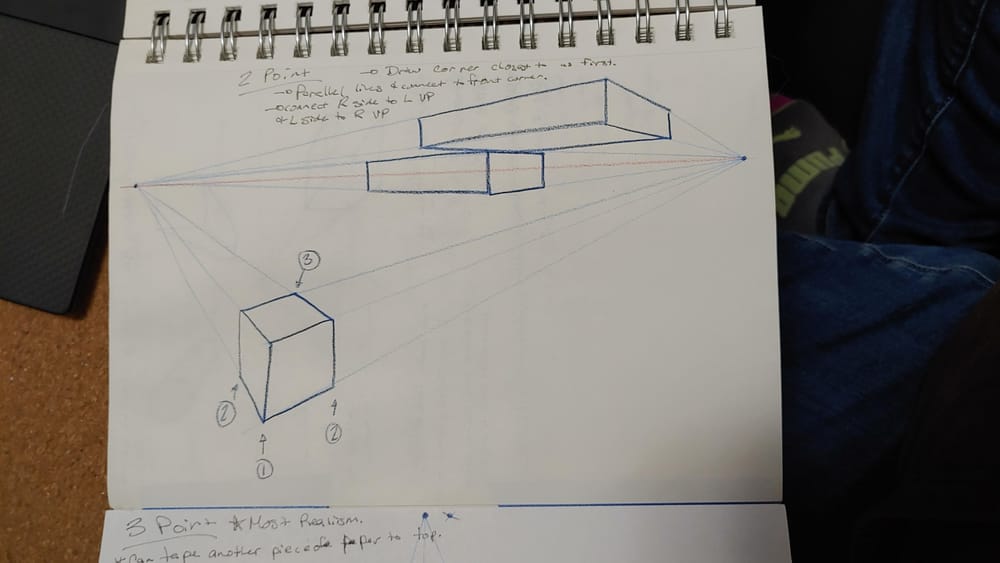 2 Point
→ Draw corner closest to us first.
→ Parallel lines & connect to front corner.
→ connect R side to L VP
& L side to R VP
3
2
2
1
3 Point * Most Realism.
* Can tape another piece of paper to top.
PUMA